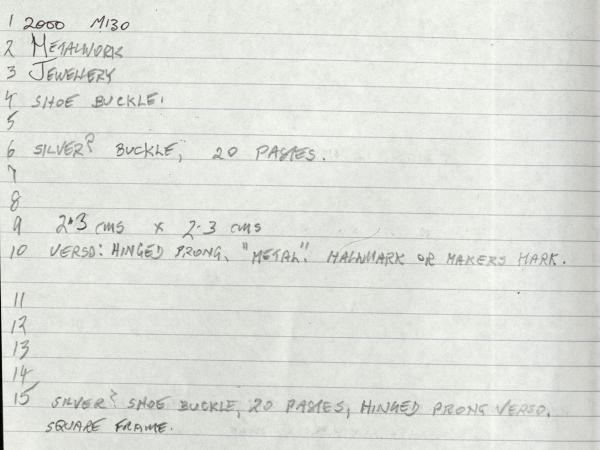 1 2000 M130
2 METALWORK
3 JEWELLERY
4 SHOE BUCKLE.
5
6 SILVER? BUCKLE, 20 PASTES.
7
8
9 2.3 cms x 2.3 cms
10 VERSO: HINGED PRONG, "METAL". HALLMARK OR MAKERS MARK.
11
12
13
14
15 SILVER? SHOE BUCKLE, 20 PASTES, HINGED PRONG VERSO.
SQUARE FRAME.